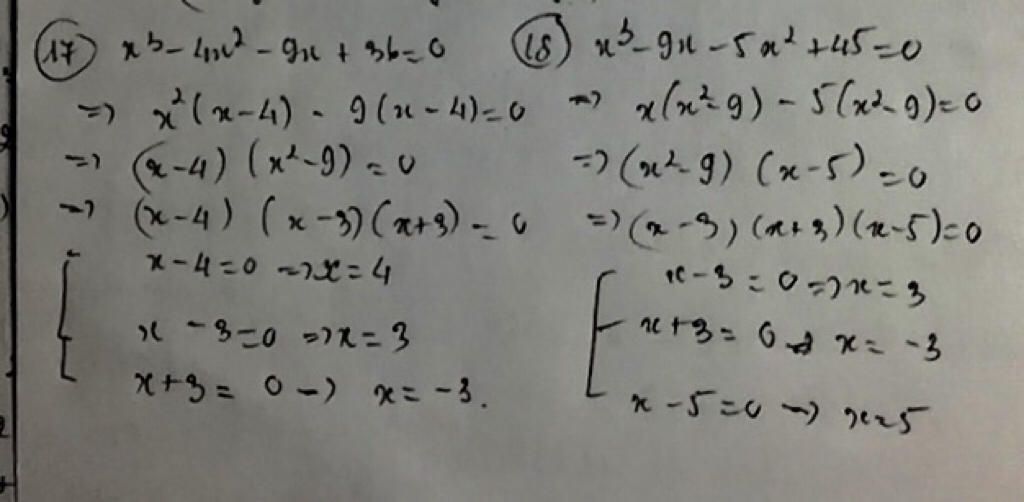 17) x³ - 4x² - 9x + 36 = 0
=> x²(x-4) - 9(x-4) = 0
=> (x-4) (x²-9) = 0
=> (x-4) (x-3)(x+3) = 0
x-4=0 => x=4
x-3=0 => x=3
x+3= 0 -> x= -3.
18) x³ - 9x - 5x² + 45 = 0
=> x(x²-9) - 5(x²-9) = 0
=> (x²-9) (x-5) = 0
=> (x-3) (x+3)(x-5) = 0
x-3=0 => x=3
x+3= 0 -> x= -3
x-5=0 -> x=5